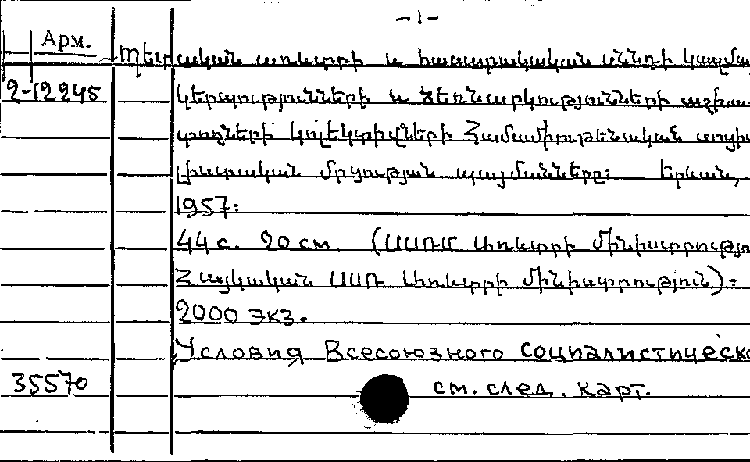 -1-
Арм. Պետական առևտրի և հասարակական սննդի կազմա
2-12245 կերպությունների և ձեռնարկությունների աշխա
տողների կոլեկտիվների Համամիութենական սոցիա
լիստական մրցության պայմանները: Երևան,
1957:
44 с. 20 см. (ՍՍՌՄ Առևտրի Մինիստրությո
Հայկական ՍՍՌ Առևտրի Մինիստրություն):
2000 экз.
Условия Всесоюзного социалистическо
35570 см. след. карт.